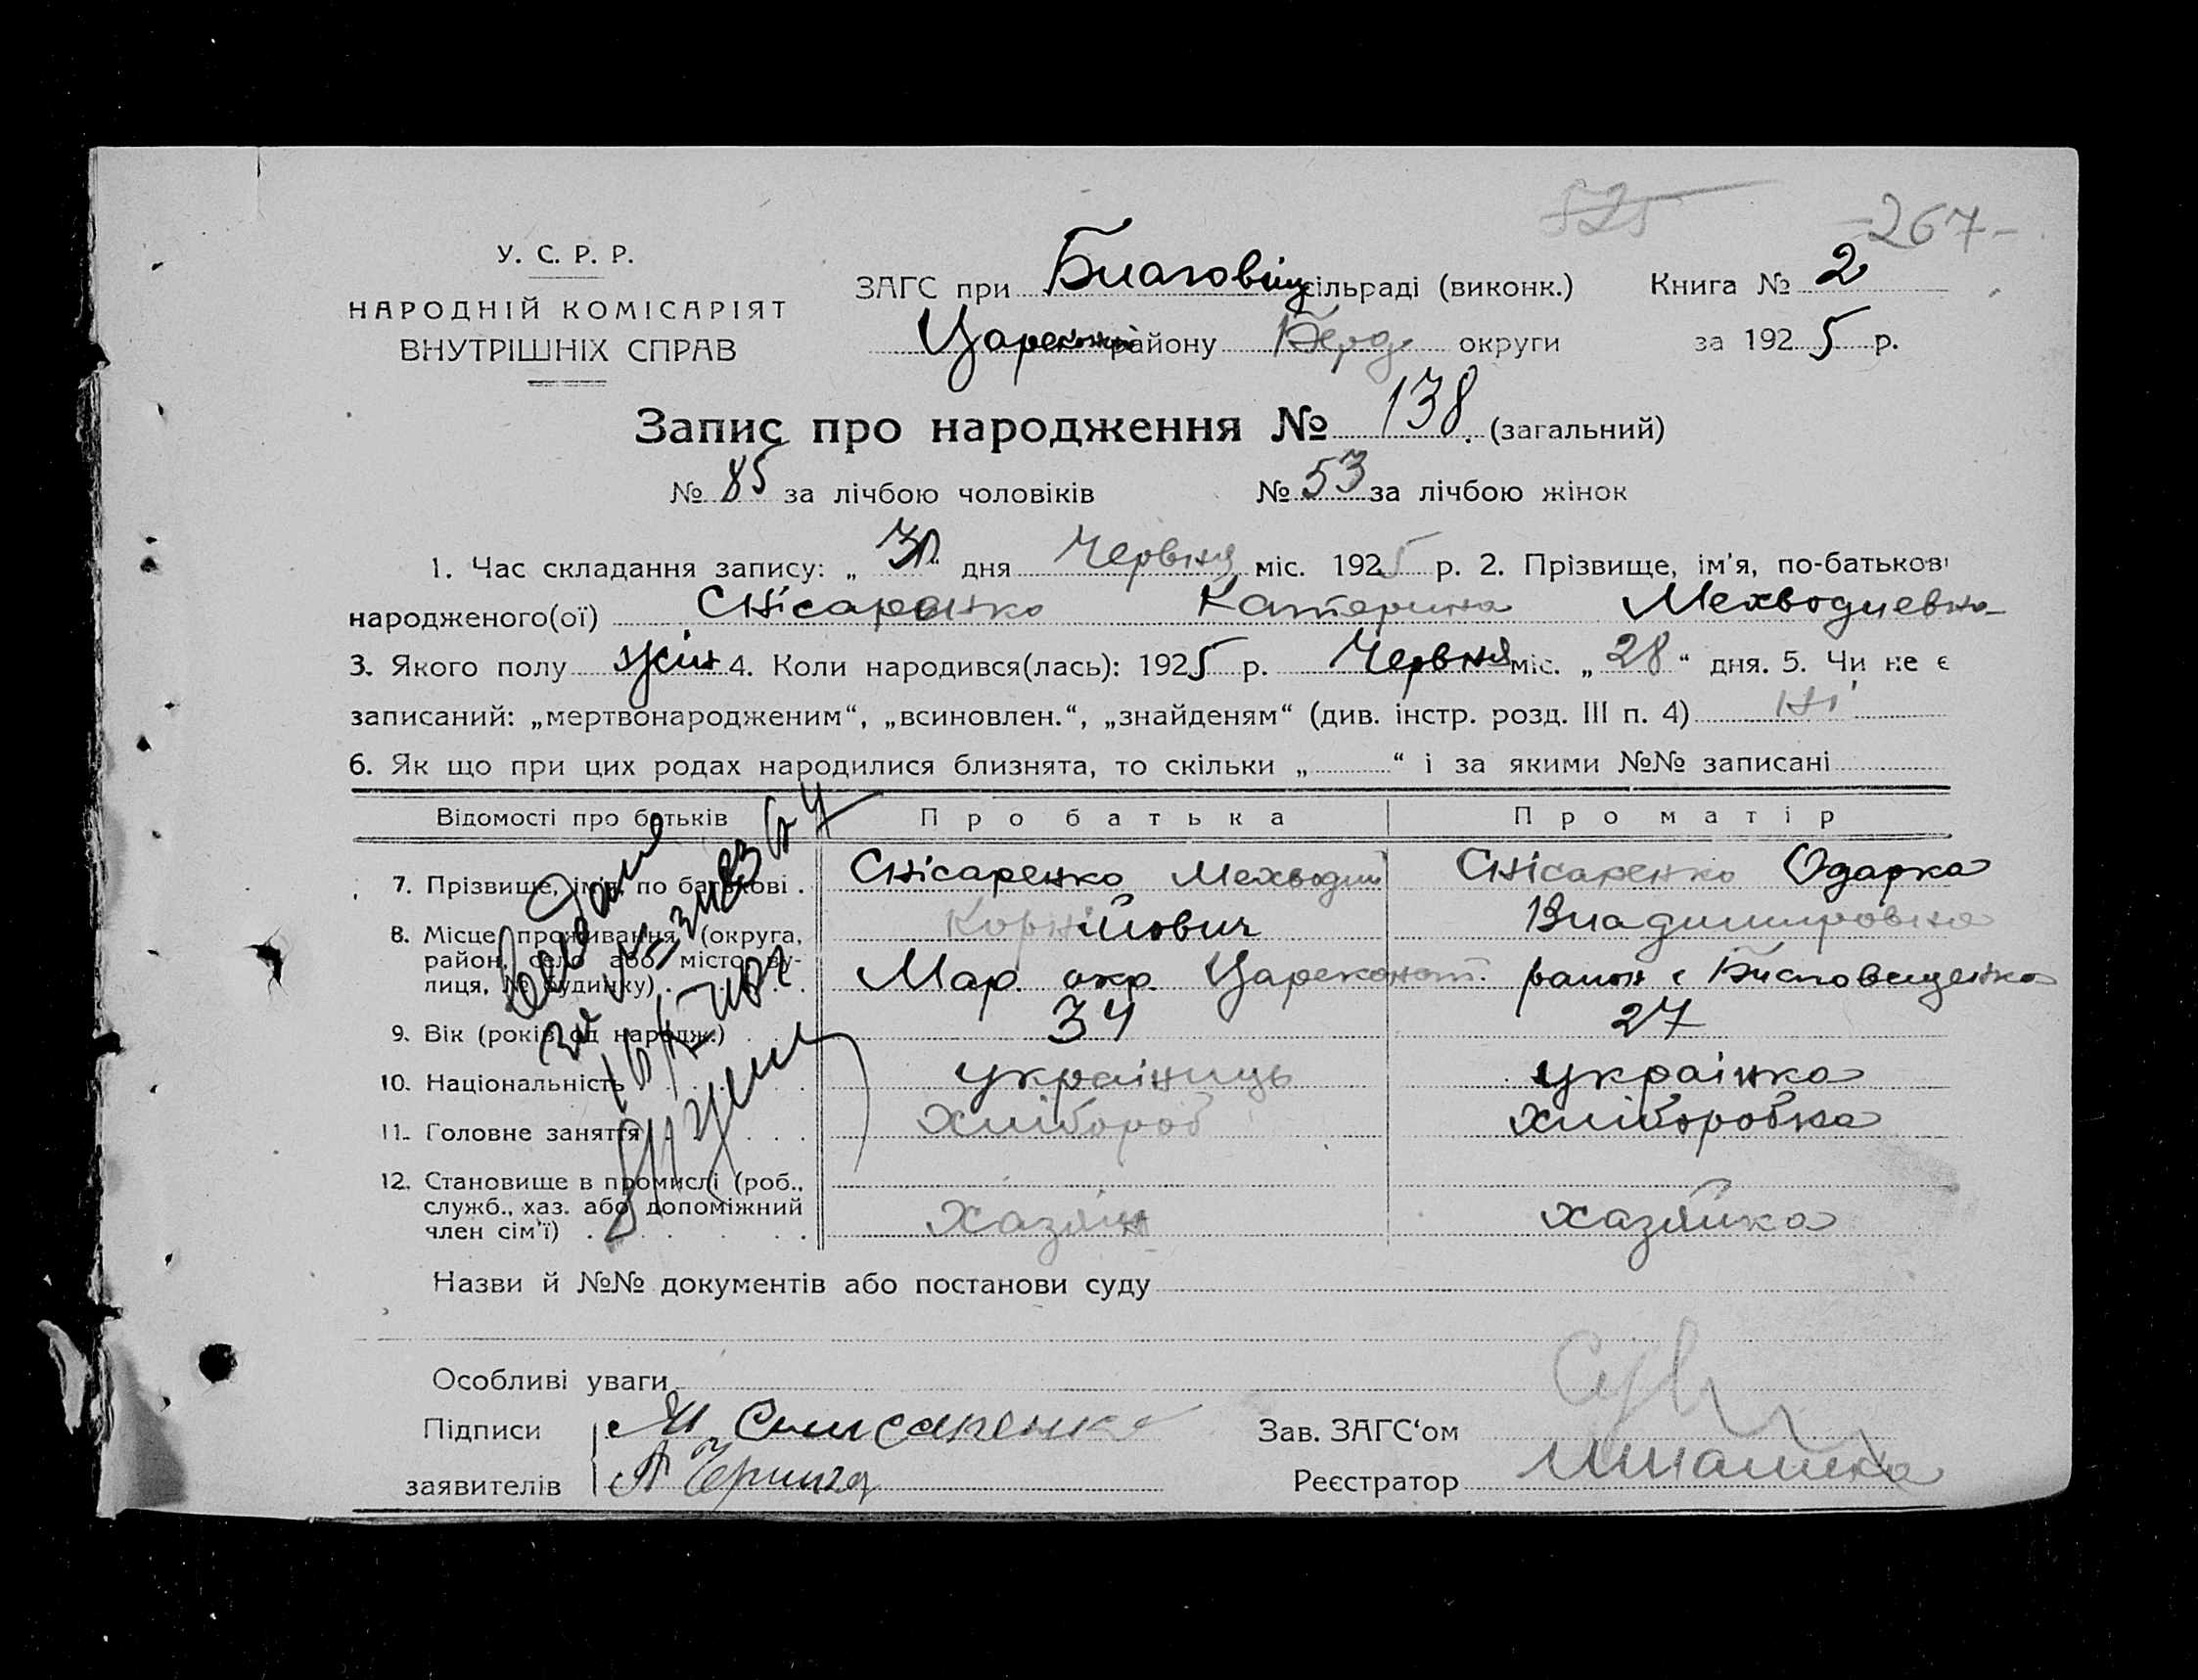 525 -267-
У. С. Р. Р.
НАРОДНІЙ КОМІСАРІЯТ
ВНУТРІШНІХ СПРАВ
ЗАГС при Благовіщ сільраді (виконк.) Книга № 2
Царекон району Берд округи за 1925 р.
Запис про народження № 138 (загальний)
№ 85 за лічбою чоловіків № 53 за лічбою жінок
1. Час складання запису: „30“ дня Червня міс. 1925 р. 2. Прізвище, ім'я, по-батькові
народженого(ої) Снісаренко Катерина Мехводиевна
3. Якого полу жін 4. Коли народився(лась): 1925 р. Червня міс. „28“ дня. 5. Чи не є
записаний: „мертвонародженим“, „всиновлен.“, „знайденям“ (див. інстр. розд. III п. 4) ні
6. Як що при цих родах народилися близнята, то скільки „ “ і за якими №№ записані
Відомості про батьків Про батька Про матір
7. Прізвище, ім'я, по батькові . Снісаренко Мехводий Снісаренко Одарка
Корнійович Владимировна
8. Місце проживання (округа, район, село або місто, вулиця, № будинку) Мар. окр. Цареконст. район с Благовещенка
9. Вік (років од народж.) 34 27
10. Національність украіниць украінка
11. Головне заняття Хлібороб Хліборобка
12. Становище в промислі (роб., служб., хаз. або допоміжний член сім'ї) Хазяін хазяйка
Назви й №№ документів або постанови суду
Особливі уваги
Підписи М. Слисаренко Зав. ЗАГС'ом
заявителів Реєстратор